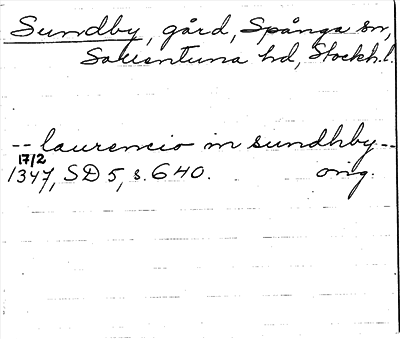 Sundby, gård, Spånga sn,
Sollentuna hd, Stockh.l.
-- laurencio in sundhby --
17/2
1347, SD 5, s. 640. orig.